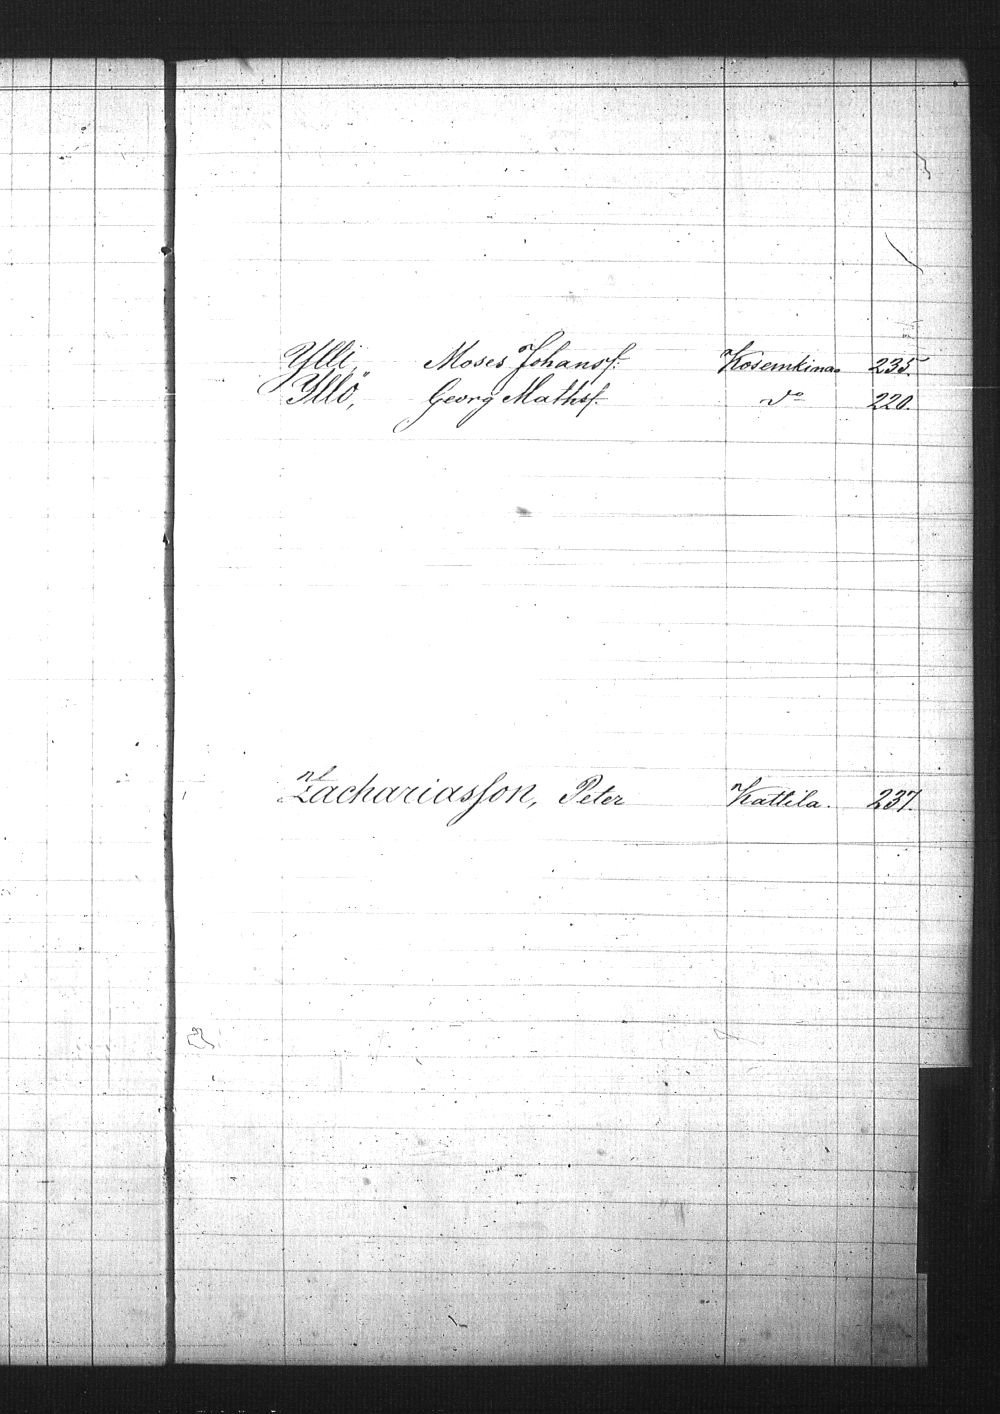 Ylli, Moses Johansf: Kosemkina 235.
Yllö, Georg Mathsf. do 220.
Zachariasson, Peter Kattila. 237.